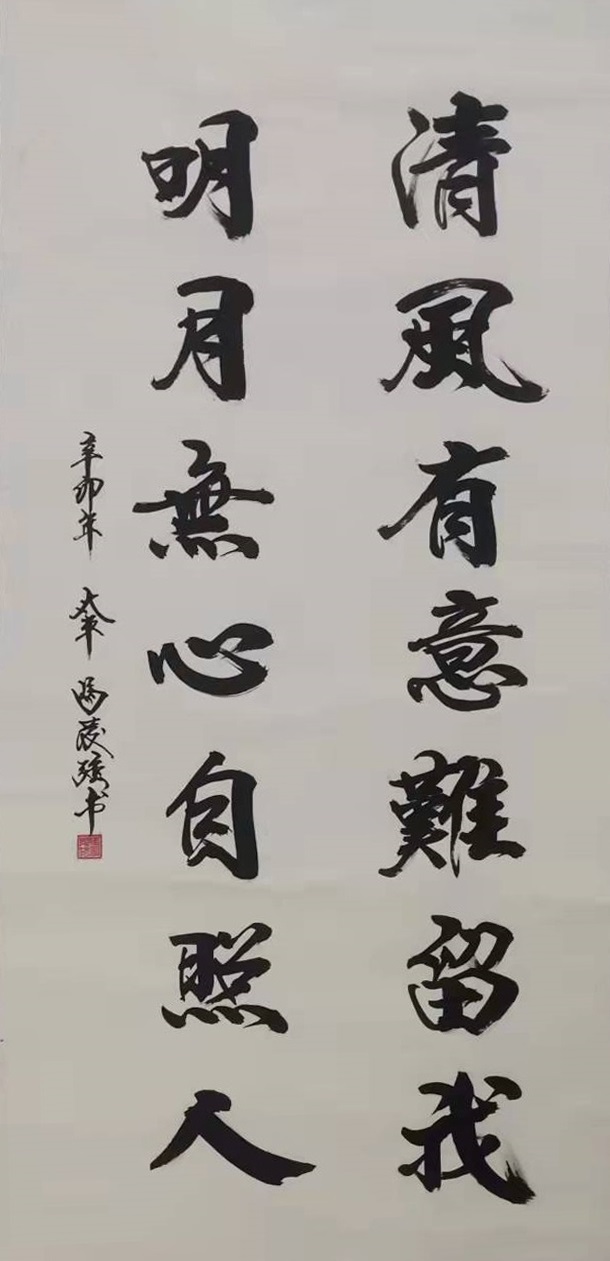 清風有意難留我
明月無心自照人
辛卯年 馮陵強书